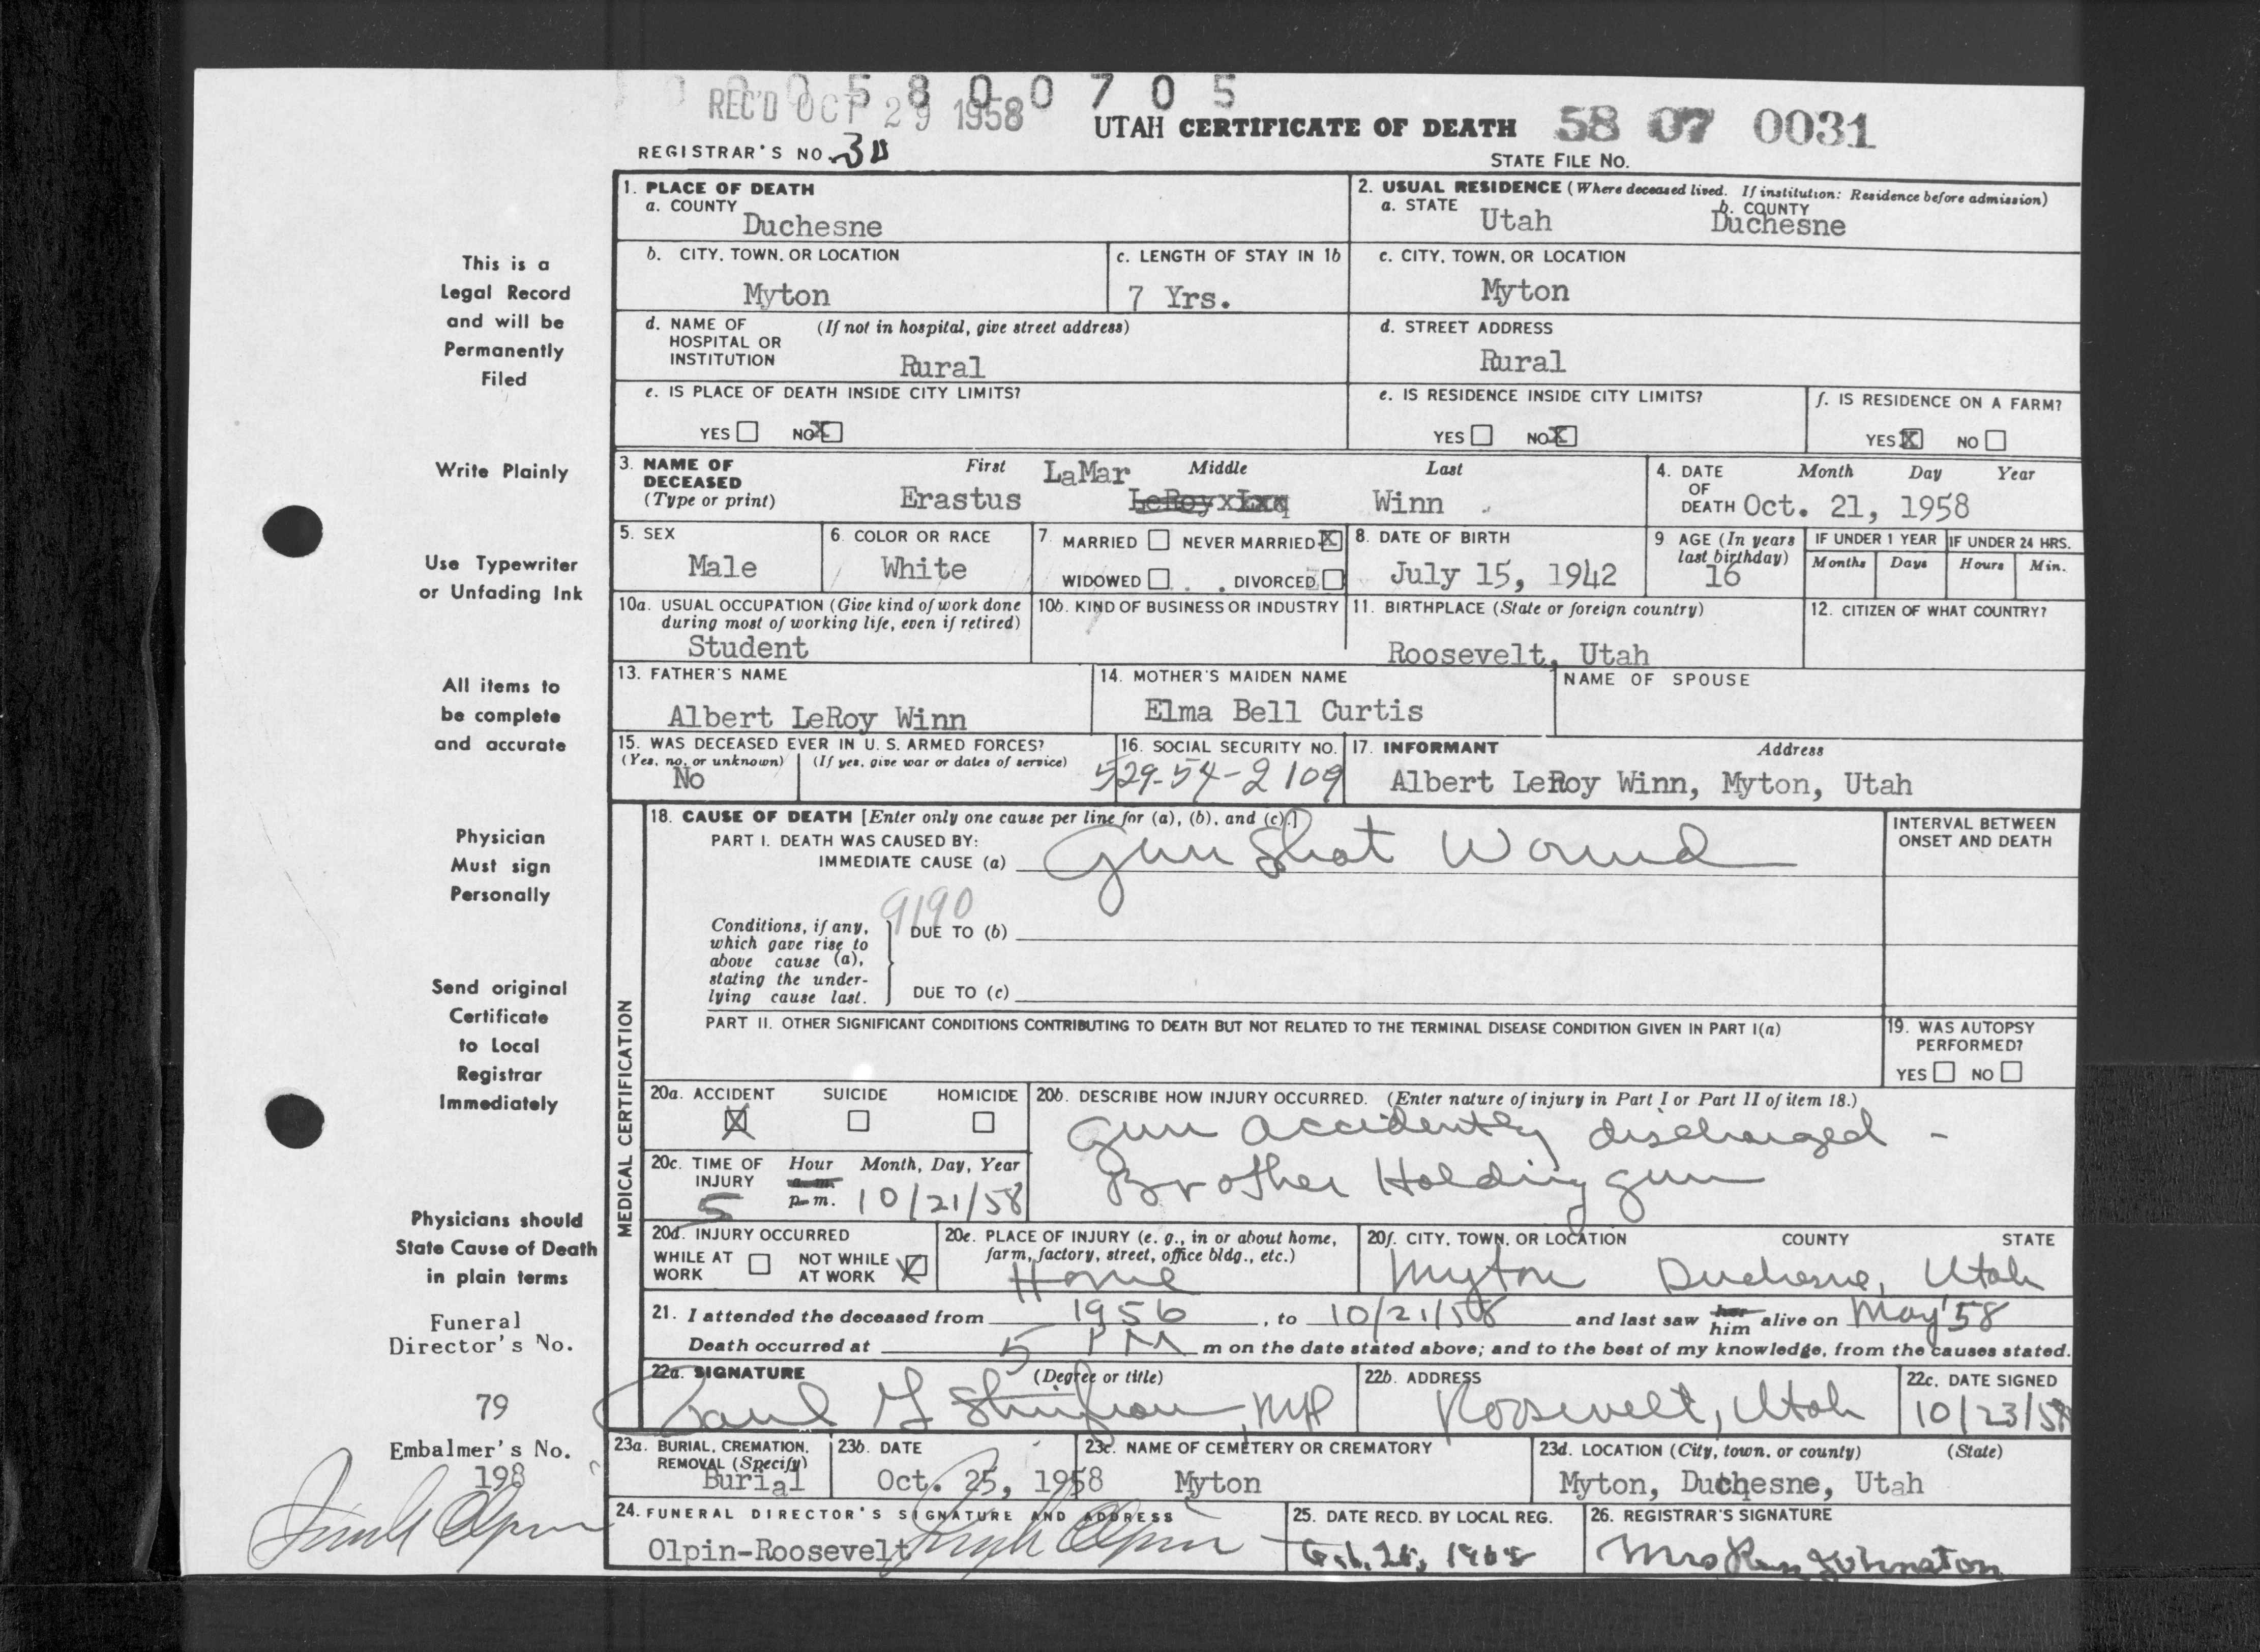 0 0 5 8 0 0 7 0 5
REC'D OCT 29 1958
UTAH CERTIFICATE OF DEATH 58 07 0031
REGISTRAR'S NO.
STATE FILE No.
This is a
Legal Record
and will be
Permanently
Filed
Write Plainly
Use Typewriter
or Unfading Ink
All items to
be complete
and accurate
Physician
Must sign
Personally
Send original
Certificate
to Local
Registrar
Immediately
Physicians should
State Cause of Death
in plain terms
Funeral
Director's No.
79
Embalmer's No.
198
1. PLACE OF DEATH
a. COUNTY
Duchesne
2. USUAL RESIDENCE (Where deceased lived. If institution: Residence before admission)
a. STATE Utah b. COUNTY Duchesne
b. CITY, TOWN, OR LOCATION
Myton
c. LENGTH OF STAY IN 1b
7 Yrs.
c. CITY, TOWN, OR LOCATION
Myton
d. NAME OF (If not in hospital, give street address)
HOSPITAL OR
INSTITUTION Rural
d. STREET ADDRESS
Rural
e. IS PLACE OF DEATH INSIDE CITY LIMITS?
YES NO X
e. IS RESIDENCE INSIDE CITY LIMITS?
YES NO X
f. IS RESIDENCE ON A FARM?
YES X NO
3. NAME OF First LaMar Middle Last
DECEASED
(Type or print) Erastus LeRoy Winn
4. DATE Month Day Year
OF
DEATH Oct. 21, 1958
5. SEX
Male
6. COLOR OR RACE
White
7. MARRIED NEVER MARRIED X
WIDOWED DIVORCED
8. DATE OF BIRTH
July 15, 1942
9 AGE (In years
last birthday)
16
IF UNDER 1 YEAR IF UNDER 24 HRS.
Months Days Hours Min.
10a. USUAL OCCUPATION (Give kind of work done
during most of working life, even if retired)
Student
10b. KIND OF BUSINESS OR INDUSTRY
11. BIRTHPLACE (State or foreign country)
Roosevelt, Utah
12. CITIZEN OF WHAT COUNTRY?
13. FATHER'S NAME
Albert LeRoy Winn
14. MOTHER'S MAIDEN NAME
Elma Bell Curtis
NAME OF SPOUSE
15. WAS DECEASED EVER IN U. S. ARMED FORCES?
(Yes, no, or unknown) (If yes, give war or dates of service)
No
16. SOCIAL SECURITY NO.
529-54-2109
17. INFORMANT Address
Albert LeRoy Winn, Myton, Utah
MEDICAL CERTIFICATION
18. CAUSE OF DEATH [Enter only one cause per line for (a), (b), and (c).]
PART I. DEATH WAS CAUSED BY:
IMMEDIATE CAUSE (a) Gun Shot Wound
INTERVAL BETWEEN
ONSET AND DEATH
9190
Conditions, if any,
which gave rise to
above cause (a),
stating the under-
lying cause last.
DUE TO (b)
DUE TO (c)
PART II. OTHER SIGNIFICANT CONDITIONS CONTRIBUTING TO DEATH BUT NOT RELATED TO THE TERMINAL DISEASE CONDITION GIVEN IN PART I(a)
19. WAS AUTOPSY
PERFORMED?
YES NO
20a. ACCIDENT SUICIDE HOMICIDE
X
20b. DESCRIBE HOW INJURY OCCURRED. (Enter nature of injury in Part I or Part II of item 18.)
Gun accidently discharged -
Brother Holding gun
20c. TIME OF Hour Month, Day, Year
INJURY a.m.
5 p.m. 10/21/58
20d. INJURY OCCURRED
WHILE AT WORK NOT WHILE AT WORK X
20e. PLACE OF INJURY (e. g., in or about home,
farm, factory, street, office bldg., etc.)
Home
20f. CITY, TOWN, OR LOCATION COUNTY STATE
Myton Duchesne, Utah
21. I attended the deceased from 1956, to 10/21/58 and last saw her him alive on May '58
Death occurred at 5 PM m on the date stated above; and to the best of my knowledge, from the causes stated.
22a. SIGNATURE (Degree or title)
Paul G Stringham, MD
22b. ADDRESS
Roosevelt, Utah
22c. DATE SIGNED
10/23/58
23a. BURIAL, CREMATION,
REMOVAL (Specify)
Burial
23b. DATE
Oct. 25, 1958
23c. NAME OF CEMETERY OR CREMATORY
Myton
23d. LOCATION (City, town, or county) (State)
Myton, Duchesne, Utah
24. FUNERAL DIRECTOR'S SIGNATURE AND ADDRESS
Olpin-Roosevelt
25. DATE RECD. BY LOCAL REG.
26. REGISTRAR'S SIGNATURE
Mrs Johnston